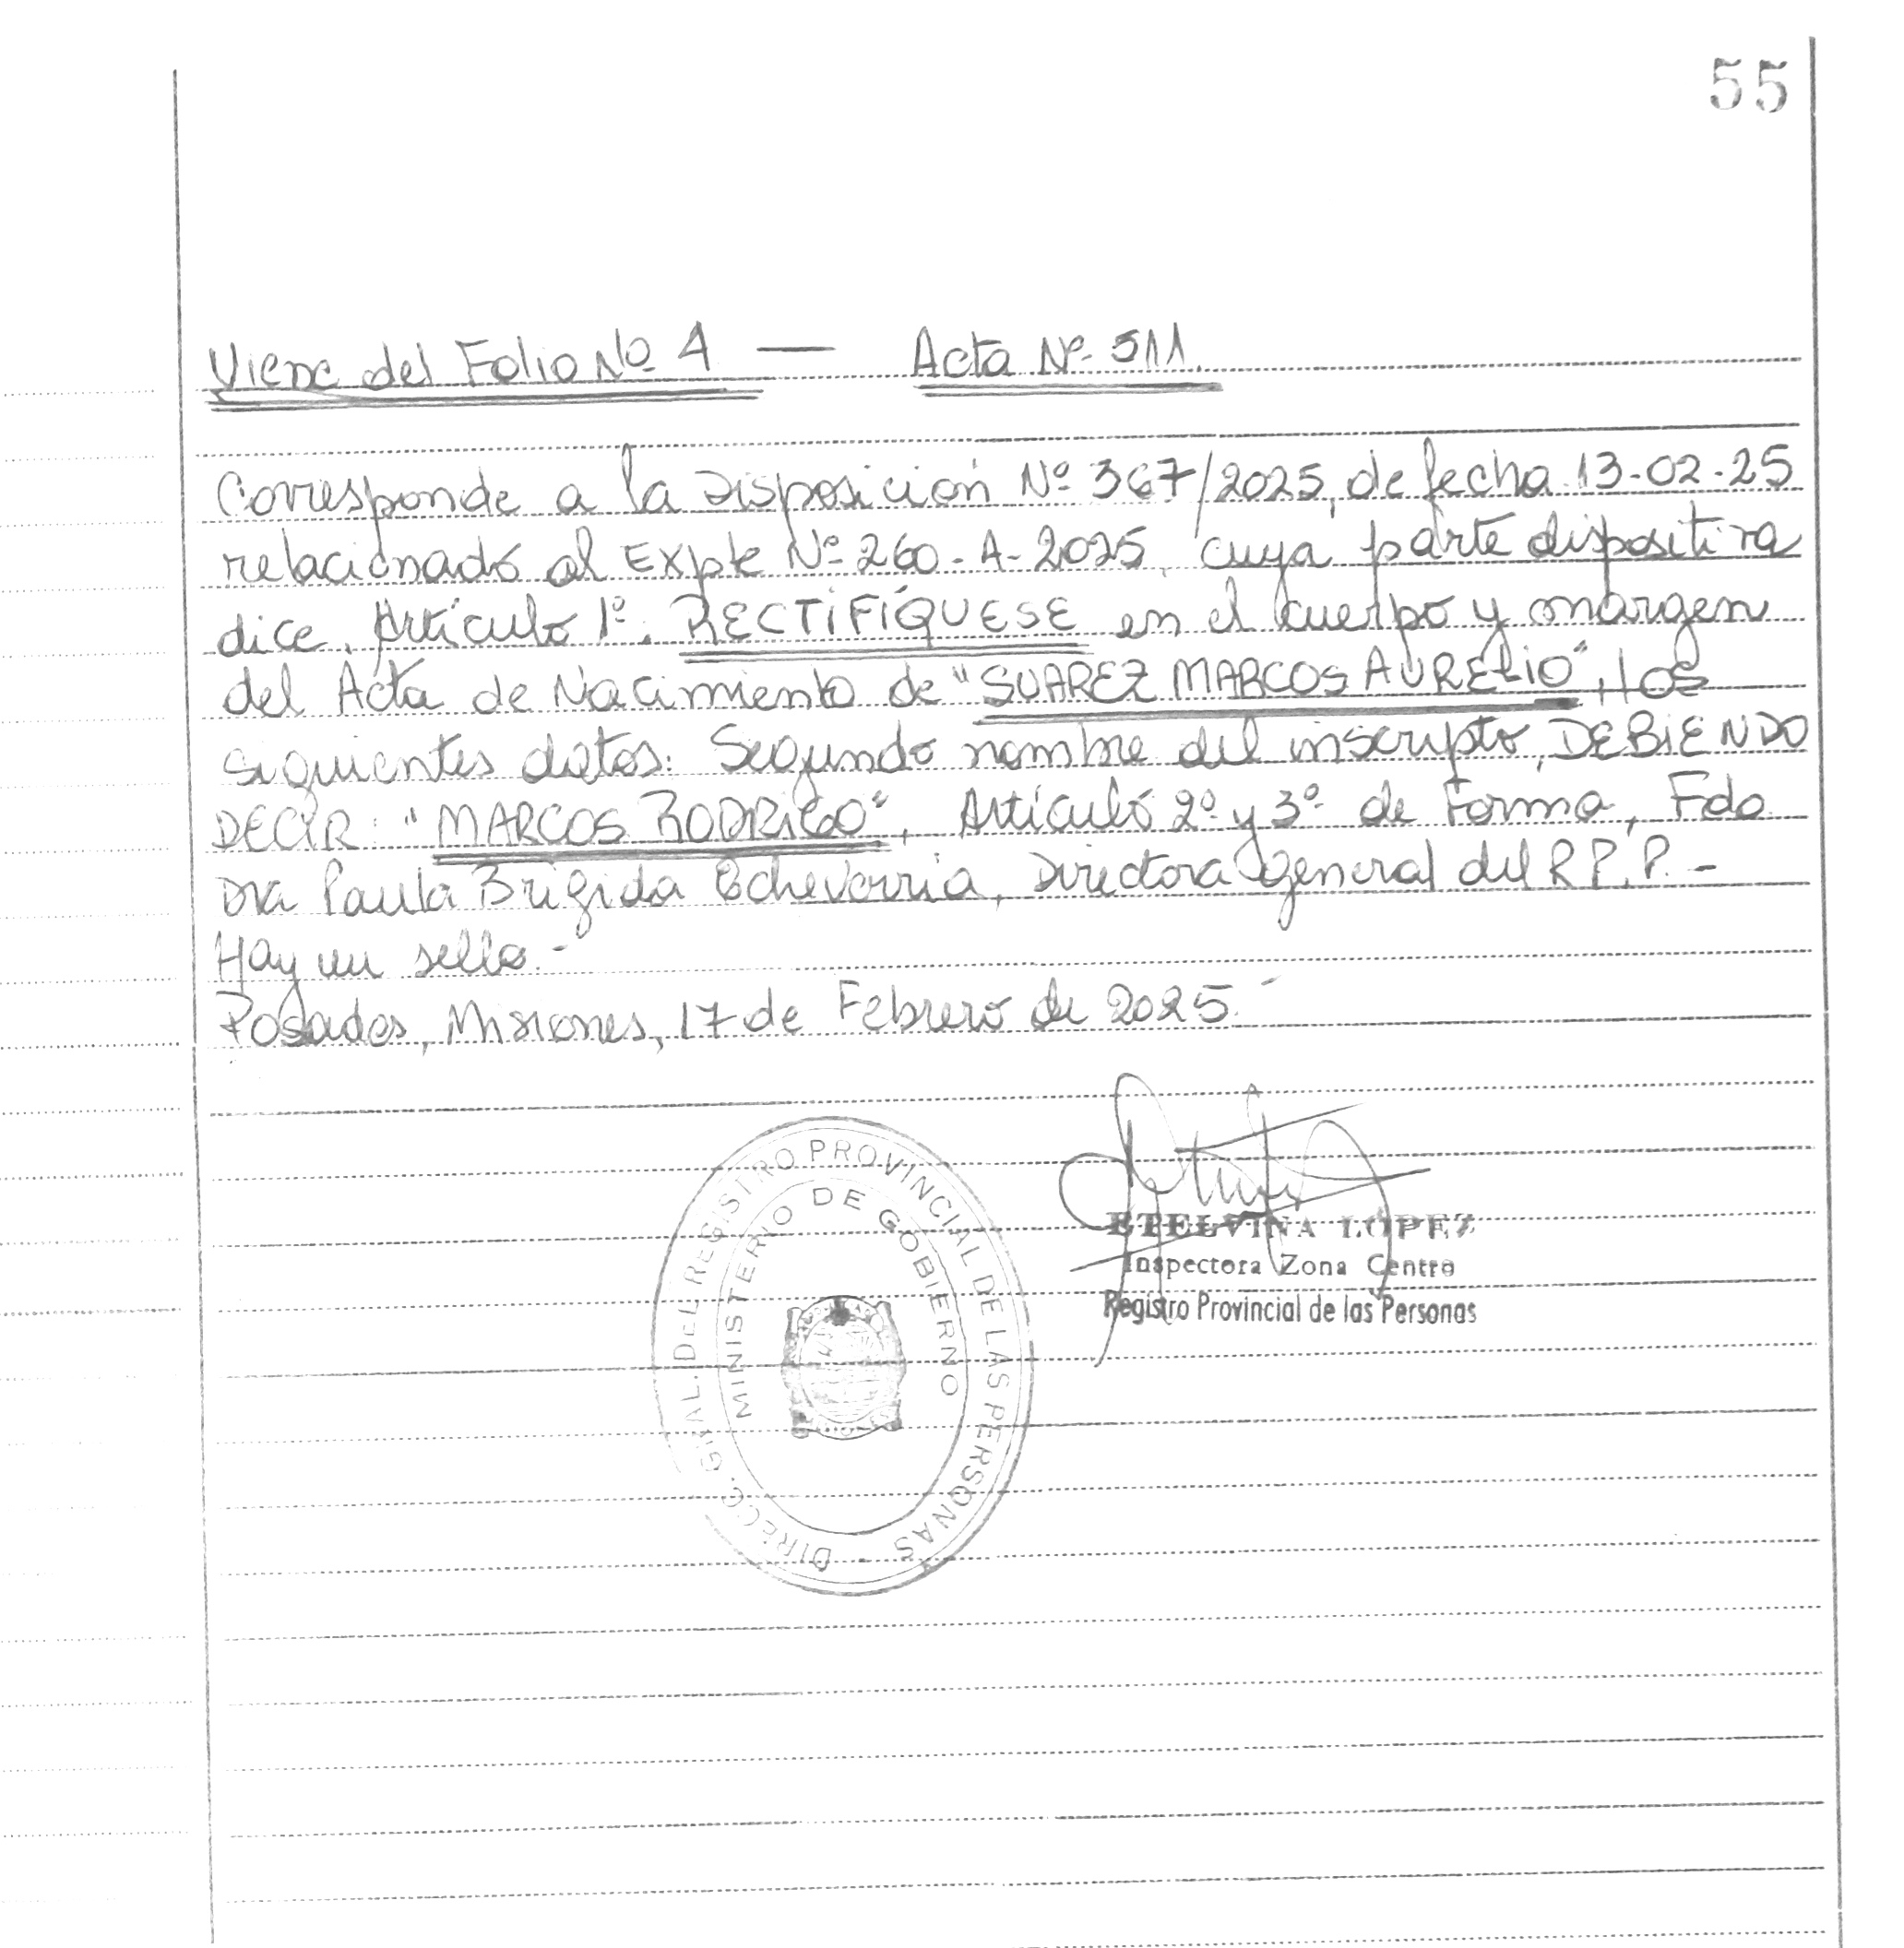 55
Viene del Folio Nº 4 — Acta Nº 511.
Corresponde a la Disposición Nº 367/2025, de fecha 13-02-25
relacionado al Expte Nº 260-A-2025, cuya parte dispositiva
dice. Artículo 1º. RECTIFÍQUESE en el cuerpo y margen
del Acta de Nacimiento de "SUAREZ MARCOS AURELIO", los
siguientes datos: Segundo nombre del inscripto, DEBIENDO
DECIR: "MARCOS RODRIGO", Artículo 2º y 3º de Forma, Fdo
Dra Paula Brígida Echeverria, Directora General del R.P.P.-
Hay un sello.-
Posadas, Misiones, 17 de Febrero de 2025.-
DIRECC. GRAL. DEL REGISTRO PROVINCIAL DE LAS PERSONAS -
MINISTERIO DE GOBIERNO
ETELVINA LOPEZ
Inspectora Zona Centro
Registro Provincial de las Personas